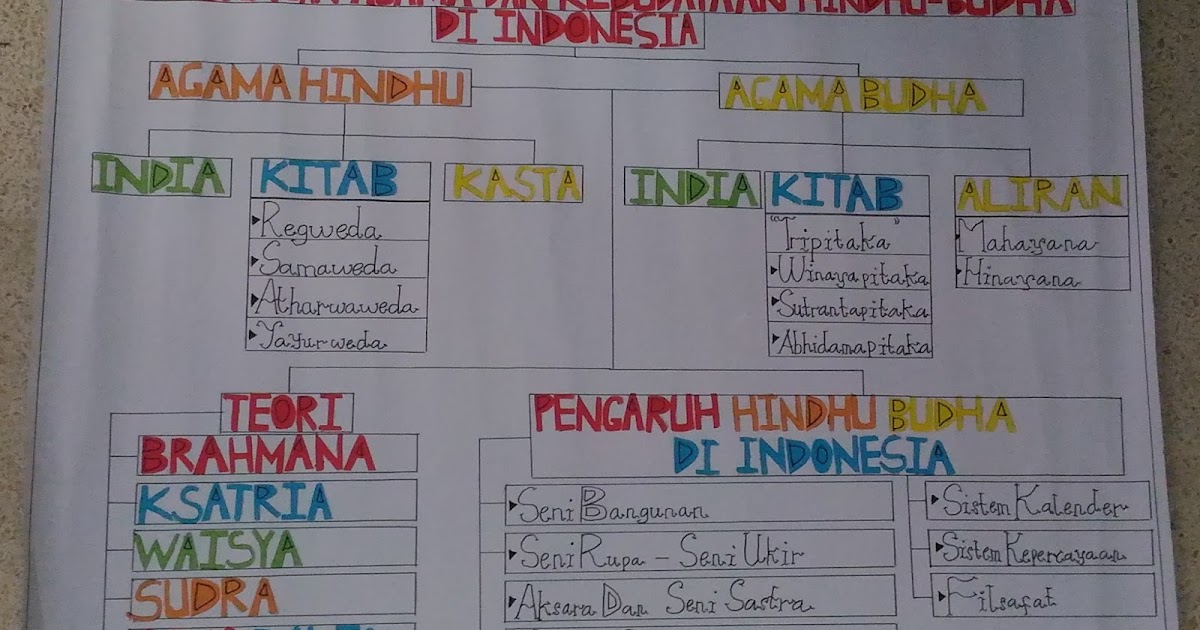 AGAMA DAN KEBUDAYAAN HINDHU-BUDHA
DI INDONESIA
AGAMA HINDHU
AGAMA BUDHA
INDIA
KITAB
KASTA
Regweda
Samaweda
Atharwaweda
Yayurweda
INDIA
KITAB
ALIRAN
"Tripitaka"
Winayapitaka
Sutrantapitaka
Abhidamapitaka
Mahayana
Hinayana
TEORI
BRAHMANA
KSATRIA
WAISYA
SUDRA
PENGARUH HINDHU BUDHA
DI INDONESIA
Seni Bangunan
Seni Rupa - Seni Ukir
Aksara Dan Seni Sastra
Sistem Kalender
Sistem Kepercayaan
Filsafat